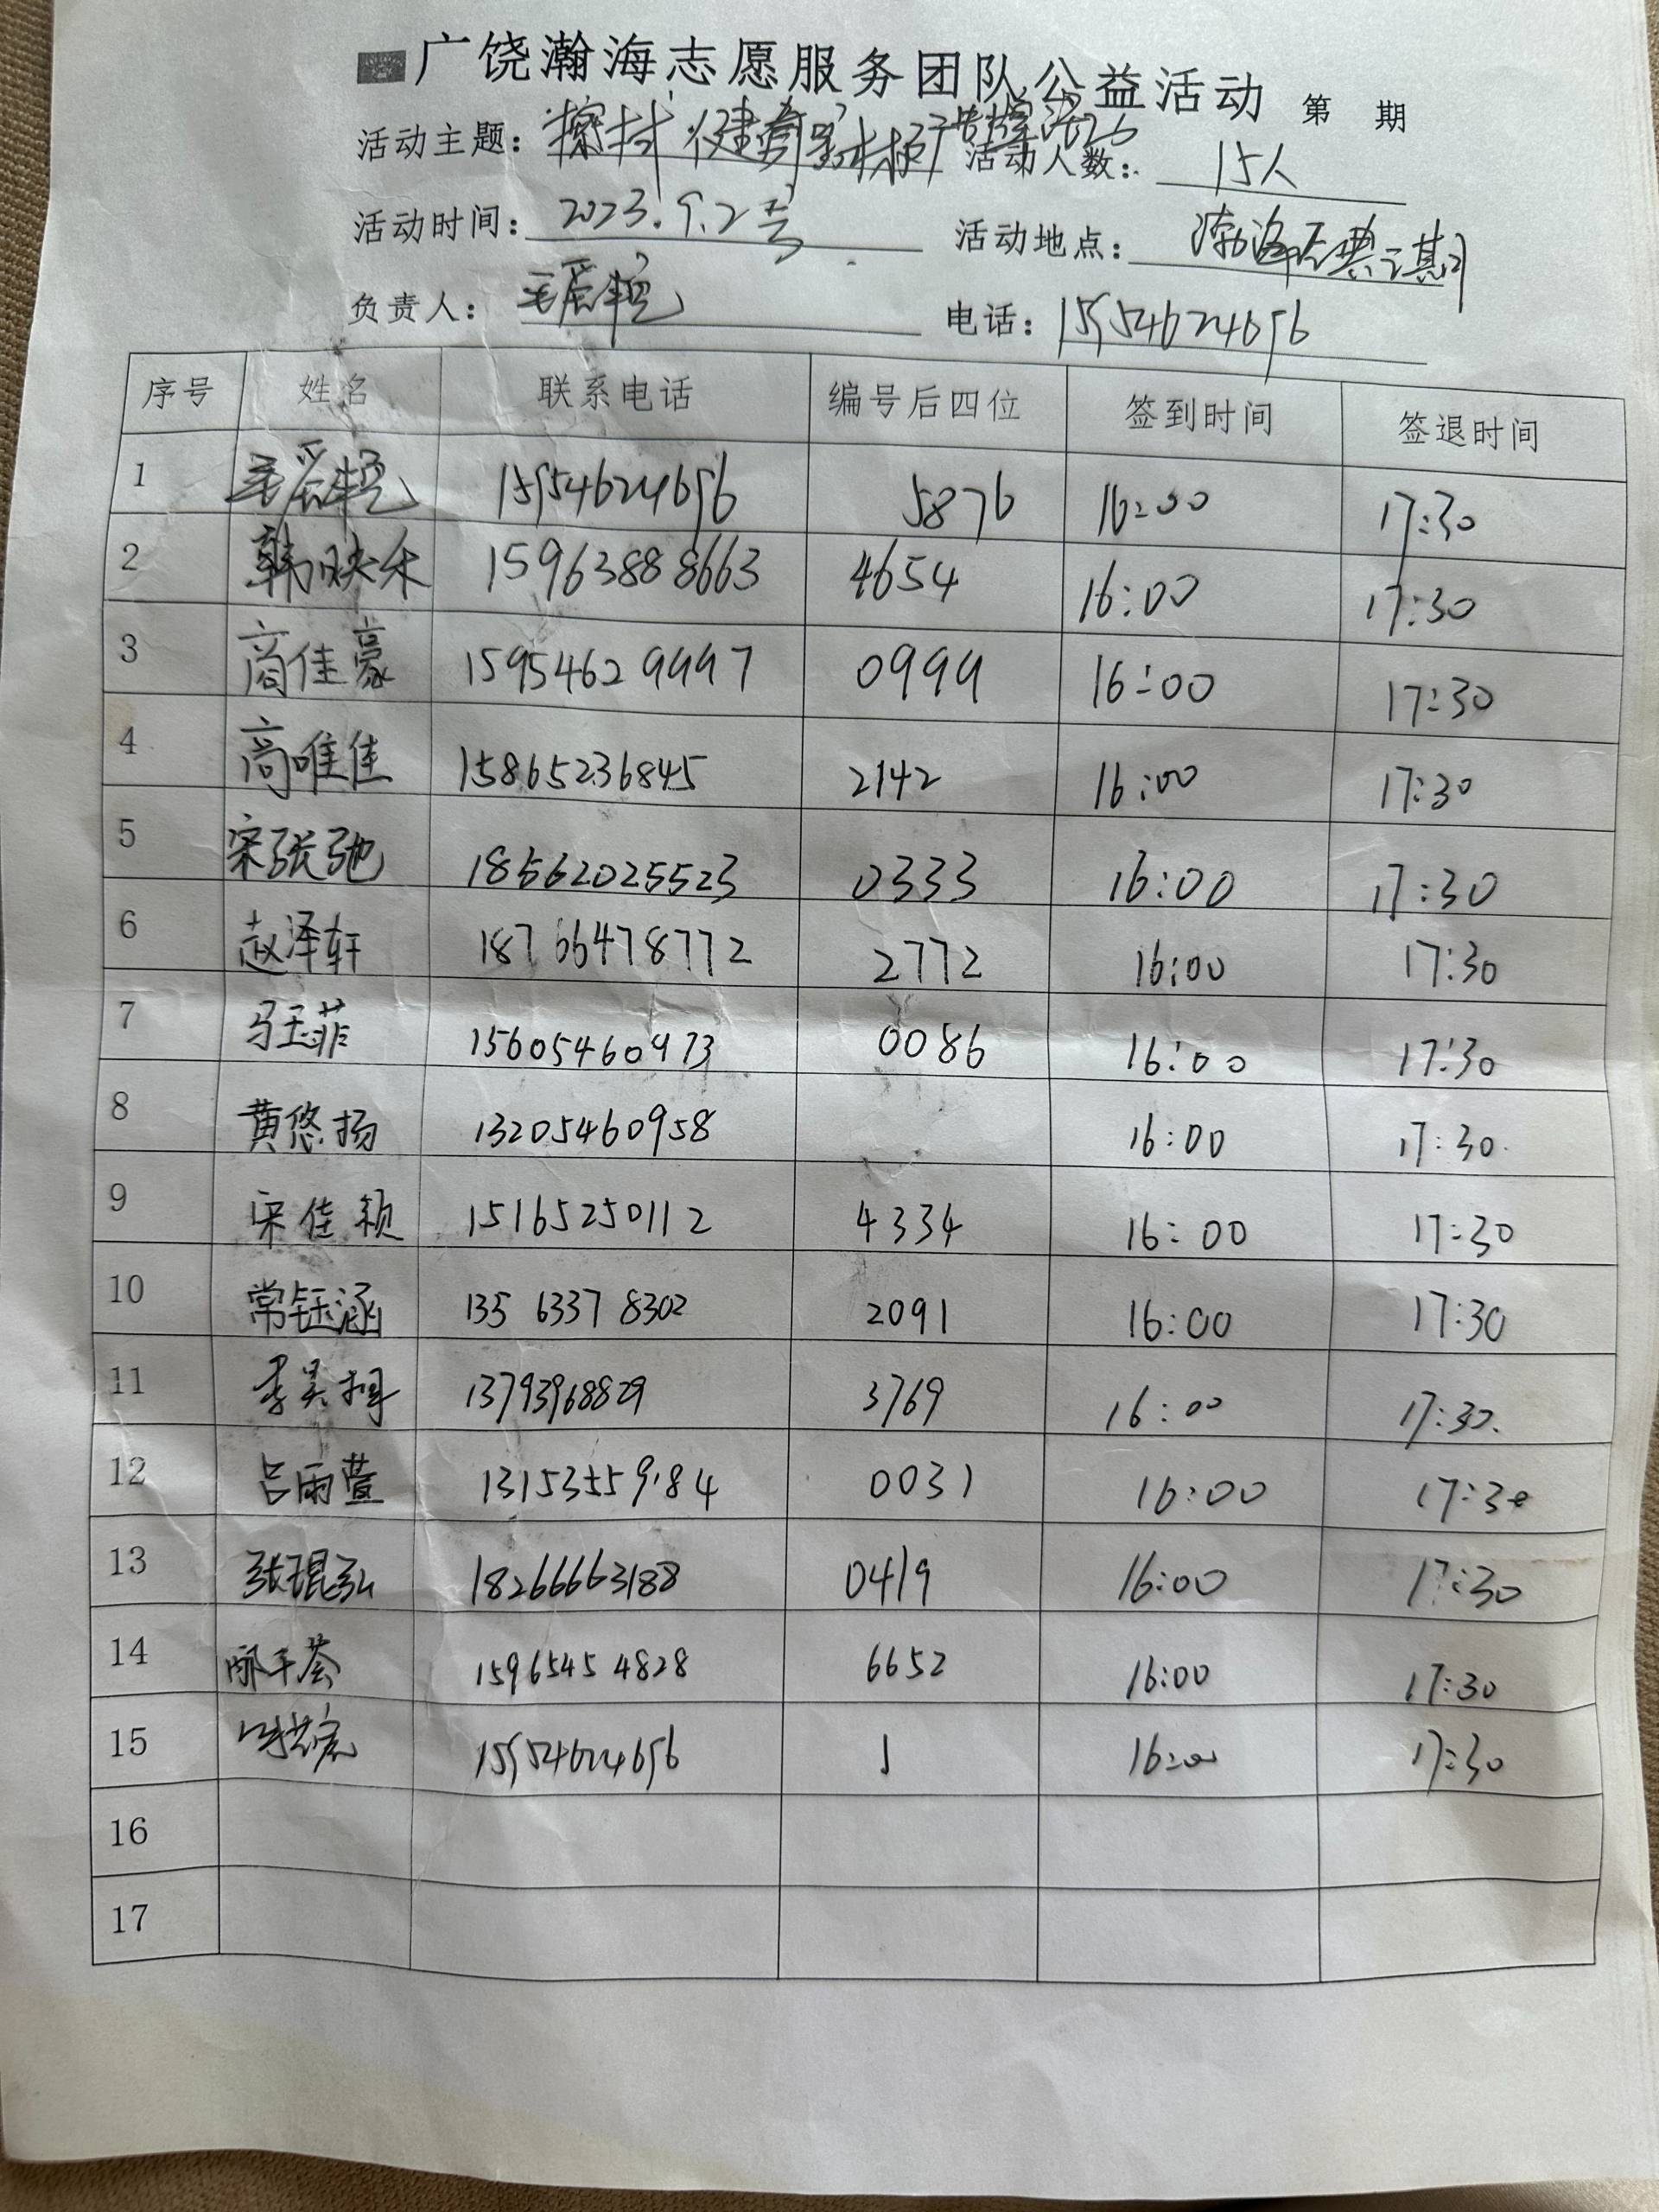 广饶瀚海志愿服务团队公益活动 第 期
活动主题: 活动人数: 15人
活动时间: 2023.9.2号 活动地点: 渤海经典二期
负责人: 电话: 15954624696
序号 姓名 联系电话 编号后四位 签到时间 签退时间
1 15954624696 5876 16:00 17:30
2 韩映禾 15963888663 4654 16:00 17:30
3 商佳豪 15954629997 0999 16:00 17:30
4 商唯佳 15865236845 2142 16:00 17:30
5 宋张弛 18562025523 0333 16:00 17:30
6 赵泽轩 18766478772 2772 16:00 17:30
7 马玉菲 15605460973 0086 16:00 17:30
8 黄悠扬 13205460958 16:00 17:30
9 宋佳颖 15165250112 4334 16:00 17:30
10 常钰涵 135 6337 8302 2091 16:00 17:30
11 13793968829 3769 16:00 17:30
12 吕雨萱 13153559184 0031 16:00 17:30
13 张琨弘 18266663188 0419 16:00 17:30
14 1596545 4828 6652 16:00 17:30
15 15954624696 16:00 17:30
16
17